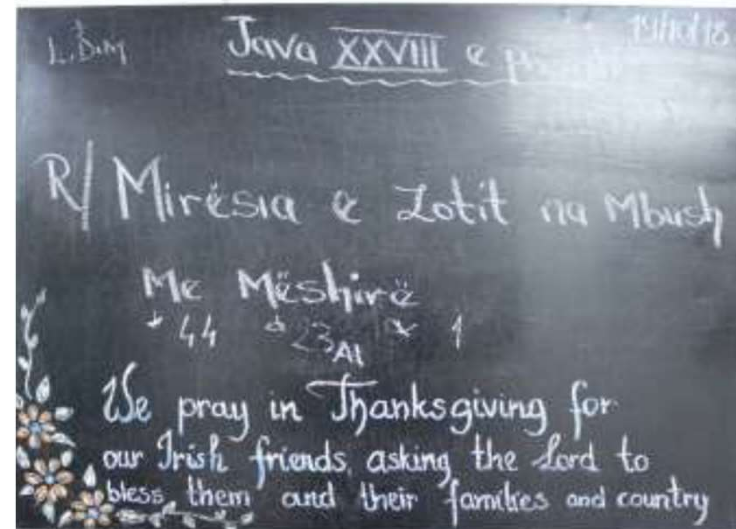 L.D.M Java XXVIII e
R/ Mirësia e Zotit na Mbush
Me Mëshirë
+ 44 23 1
AI
We pray in Thanksgiving for
our Irish friends, asking the Lord to
bless them and their families and country